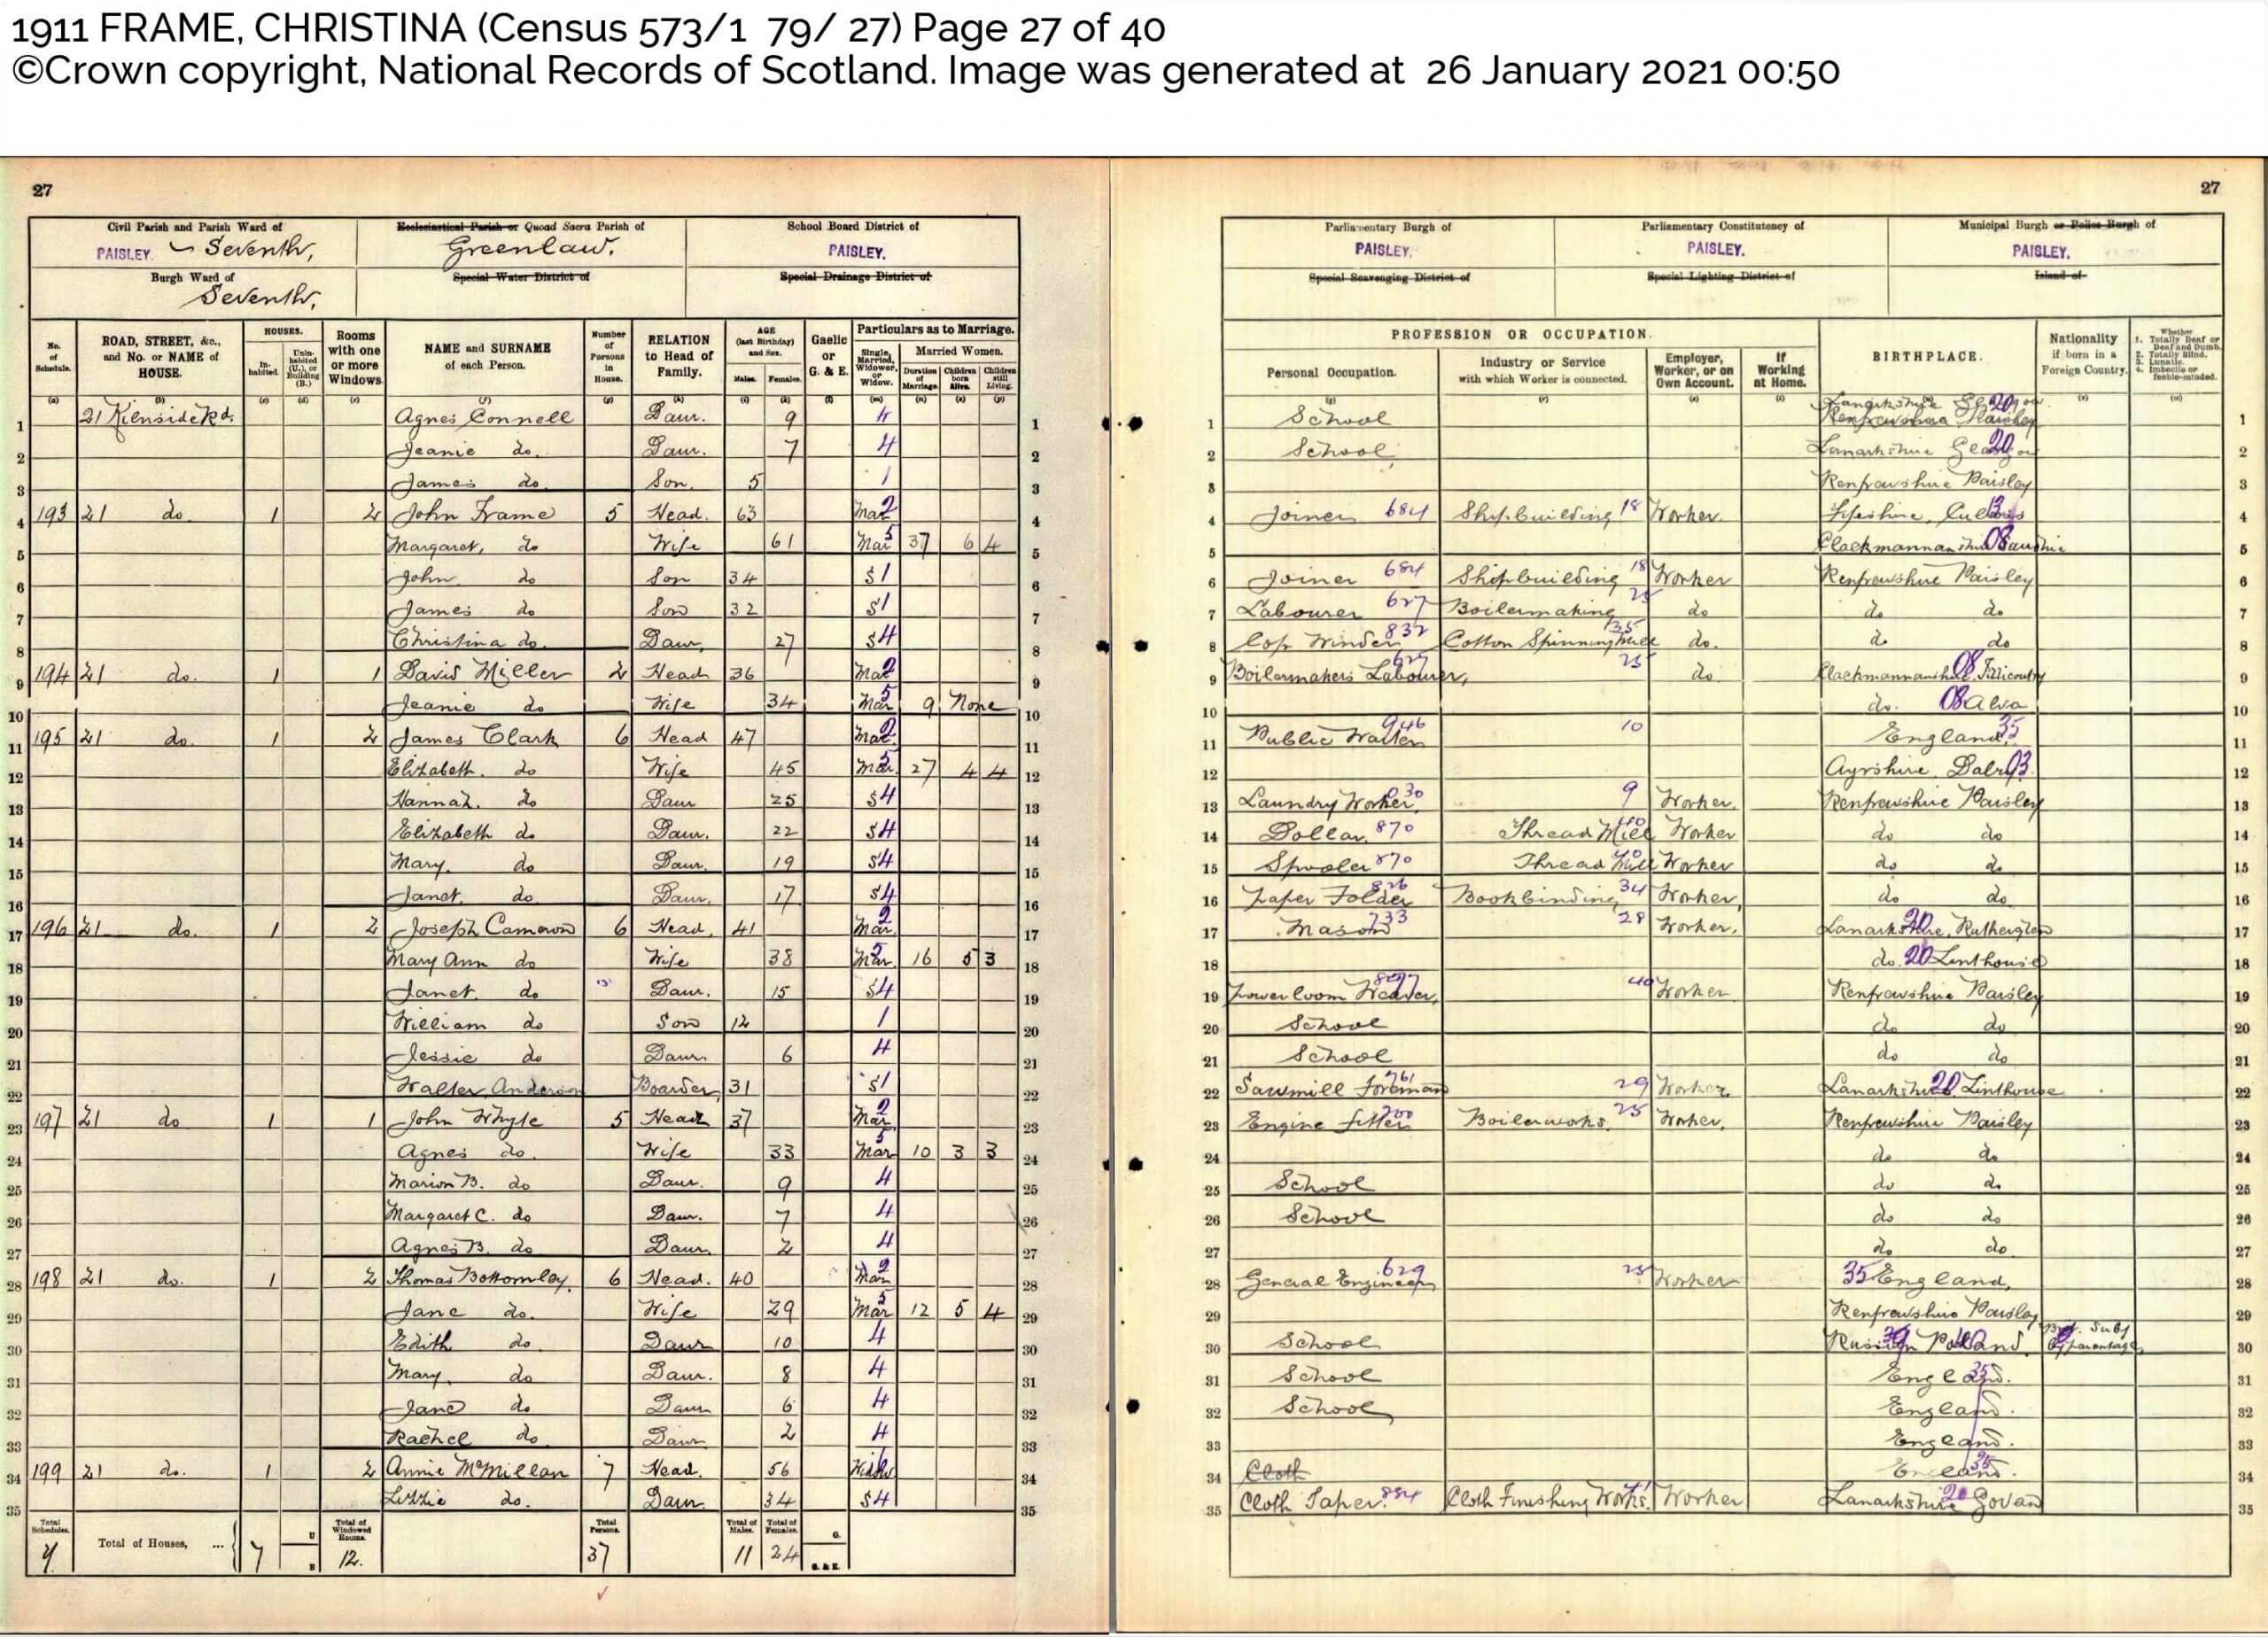 1911 FRAME, CHRISTINA (Census 573/1 79/ 27) Page 27 of 40
©Crown copyright, National Records of Scotland. Image was generated at 26 January 2021 00:50
27 27
Civil Parish and Parish Ward of PAISLEY. Seventh, Ecclesiastical Parish or Quoad Sacra Parish of Greenlaw. School Board District of PAISLEY.
Burgh Ward of Seventh, Special Water District of Special Drainage District of
Parliamentary Burgh of PAISLEY. Parliamentary Constituency of PAISLEY. Municipal Burgh or Police Burgh of PAISLEY.
Special Scavenging District of Special Lighting District of Island of
No. of Schedule. ROAD, STREET, &c., and No. or NAME of HOUSE. HOUSES. Inhabited. Uninhabited (U.), or Building (B.) Rooms with one or more Windows NAME and SURNAME of each Person. Number of Persons in House. RELATION to Head of Family. AGE (last Birthday) and Sex. Males. Females. Gaelic or G. & E. Particulars as to Marriage. Single, Married, Widower, or Widow. Married Women. Duration of Marriage. Children born Alive. Children still Living.
PROFESSION OR OCCUPATION. Personal Occupation. Industry or Service with which Worker is connected. Employer, Worker, or on Own Account. If Working at Home. BIRTHPLACE. Nationality if born in a Foreign Country. Whether 1. Totally Deaf or Deaf and Dumb. 2. Totally Blind. 3. Lunatic. 4. Imbecile or feeble-minded.
1 21 Kilnside Rd. Agnes Connell Daur. 9 4 School Renfrewshire Paisley
2 Jeanie do. Daur. 7 4 School Lanarkshire 20
3 James do Son. 5 1 Renfrewshire Paisley
4 193 21 do. 1 2 John Frame 5 Head. 63 Mar 2 Joiner 684 Shipbuilding 18 Worker. Fifeshire, 13
5 Margaret, do Wife 61 Mar 5 37 6 4 08
6 John do Son 34 S1 Joiner 684 Shipbuilding 18 Worker Renfrewshire Paisley
7 James do Son 32 S1 Labourer 627 Boilermaking 25 do do do
8 Christina do. Daur, 27 S4 Cop Winder 832 Cotton Spinning Mill 35 do. do do
9 194 21 do. 1 1 David Miller 2 Head 36 Mar 2 Boilermakers Labourer, 627 25 do 08 Tillicoultry
10 Jeanie do Wife 34 Mar 5 9 None do. 08 Alva
11 195 21 do. 1 2 James Clark 6 Head 47 Mar 2 Public Waiter 946 10 England. 35
12 Elizabeth. do Wife 45 Mar 5 27 4 4 Ayrshire 03
13 Hannah. do Daur 25 S4 Laundry Worker 930 9 Worker. Renfrewshire Paisley
14 Elizabeth do Daur. 22 S4 870 Thread Mill 40 Worker do do
15 Mary. do Daur. 19 S4 Spooler 870 Thread Mill 40 Worker do do
16 Janet. do Daur. 17 S4 Paper Folder 826 Bookbinding, 34 Worker, do do
17 196 21 do. 1 2 Joseph Cameron 6 Head. 41 Mar 2 Mason 733 28 Worker. Lanarkshire, 20 Rutherglen
18 Mary Ann do Wife 38 Mar 5 16 5 3 do. 20 Linthouse
19 Janet. do Daur. 15 S4 Powerloom Weaver, 40 Worker Renfrewshire Paisley
20 William do Son 12 1 School do do
21 Jessie do Daur 6 4 School do do
22 Walter Anderson Boarder, 31 S1 Sawmill Foreman 761 29 Worker. Lanarkshire 20 Linthouse
23 197 21 do 1 1 John Whyte 5 Head 37 Mar 2 Engine fitter 700 Boilerworks. 25 Worker, Renfrewshire Paisley
24 Agnes do. Wife 33 Mar 5 10 3 3 do do
25 Marion B. do Daur. 9 4 School do do
26 Margaret C. do Daur. 7 4 School do do
27 Agnes B. do Daur. 2 4 do do
28 198 21 do. 1 2 Thomas Bottomley. 6 Head. 40 Mar 2 General Engineer 629 25 Worker 35 England,
29 Jane do. Wife 29 Mar 5 12 5 4 Renfrewshire Paisley
30 Edith do Daur 10 4 School Russian Poland. Brit. Subj By parentage
31 Mary do Daur. 8 4 School England. 35
32 Jane do Daur 6 4 School England.
33 Rachel do Daur 2 4 England.
34 199 21 do. 1 2 Annie McMillan 7 Head. 56 Widow Cloth England. 35
35 Lizzie do. Daur 34 S4 Cloth Taper. 884 Cloth Finishing Works. 41 Worker Lanarkshire 20 Govan
Total Schedules. 7 Total of Houses, ... 7 U B Total of Windowed Rooms. 12. Total Persons. 37 Total of Males. 11 Total of Females. 24 G. G. & E.